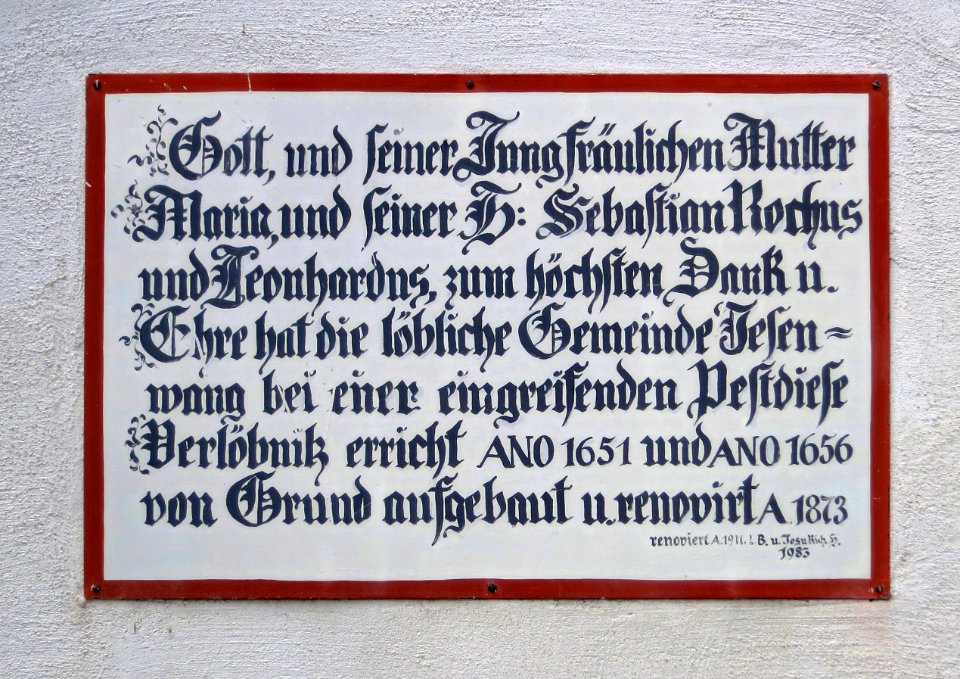 Gott, und seiner Jungfräulichen Mutter
Maria, und seiner H: Sebastian Rochus
und Leonhardus, zum höchsten Dank u.
Ehre hat die löbliche Gemeinde Jesen=
wang bei einer eingreifenden Pest diese
Verlöbniß erricht ANO 1651 und ANO 1656
von Grund aufgebaut u. renovirt A. 1873
renoviert A. 1911. B. u.
1983